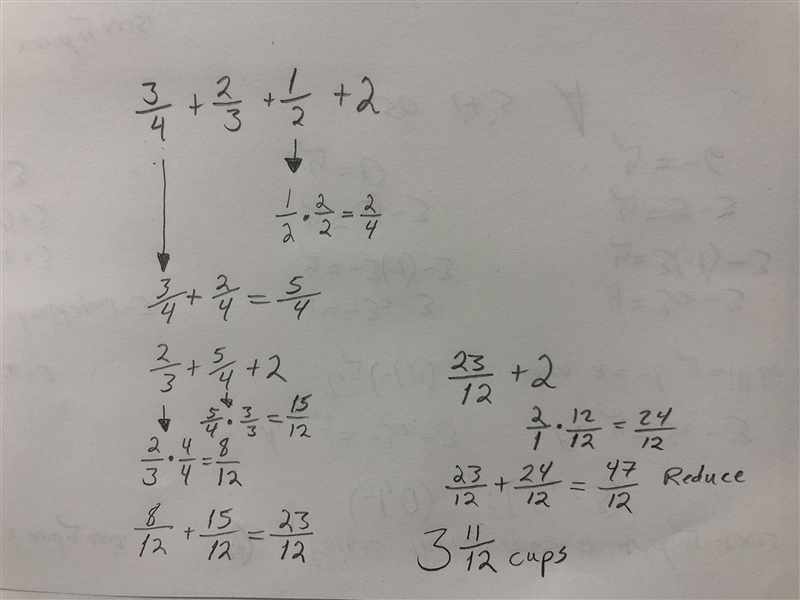 3/4 + 2/3 + 1/2 + 2
1/2 · 2/2 = 2/4
3/4 + 2/4 = 5/4
2/3 + 5/4 + 2
5/4 · 3/3 = 15/12
2/3 · 4/4 = 8/12
8/12 + 15/12 = 23/12
23/12 + 2
2/1 · 12/12 = 24/12
23/12 + 24/12 = 47/12 Reduce
3 11/12 cups